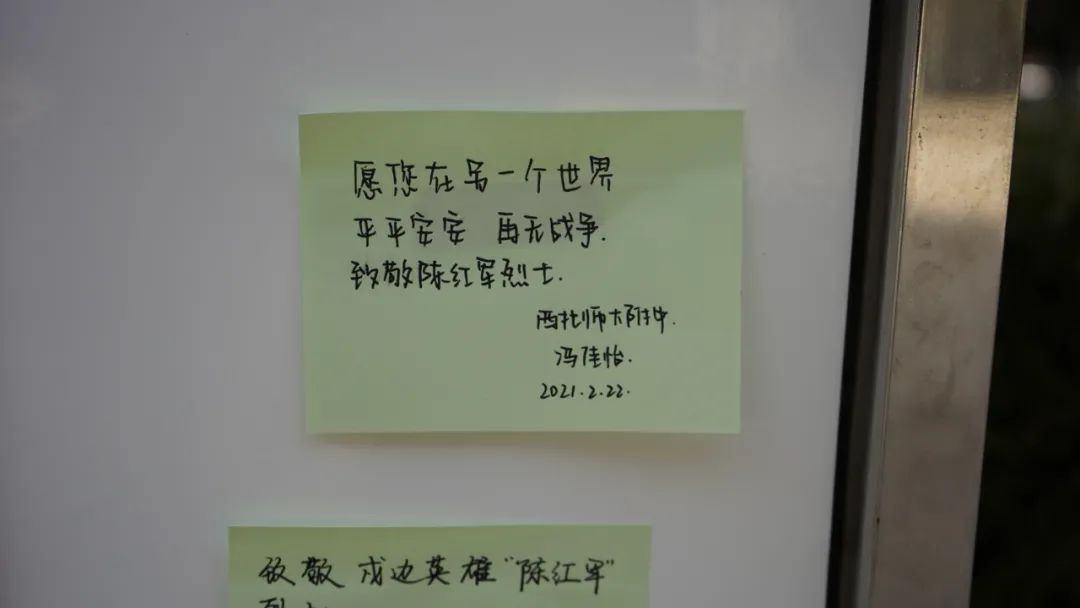 愿您在另一个世界
平平安安 再无战争.
致敬陈红军烈士.
西北师大附中.
冯佳怡.
2021.2.22.
致敬 戍边英雄"陈红军"